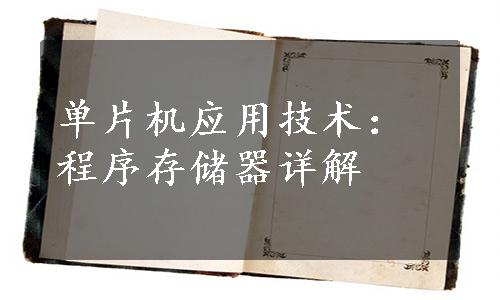 单片机应用技术：
程序存储器详解